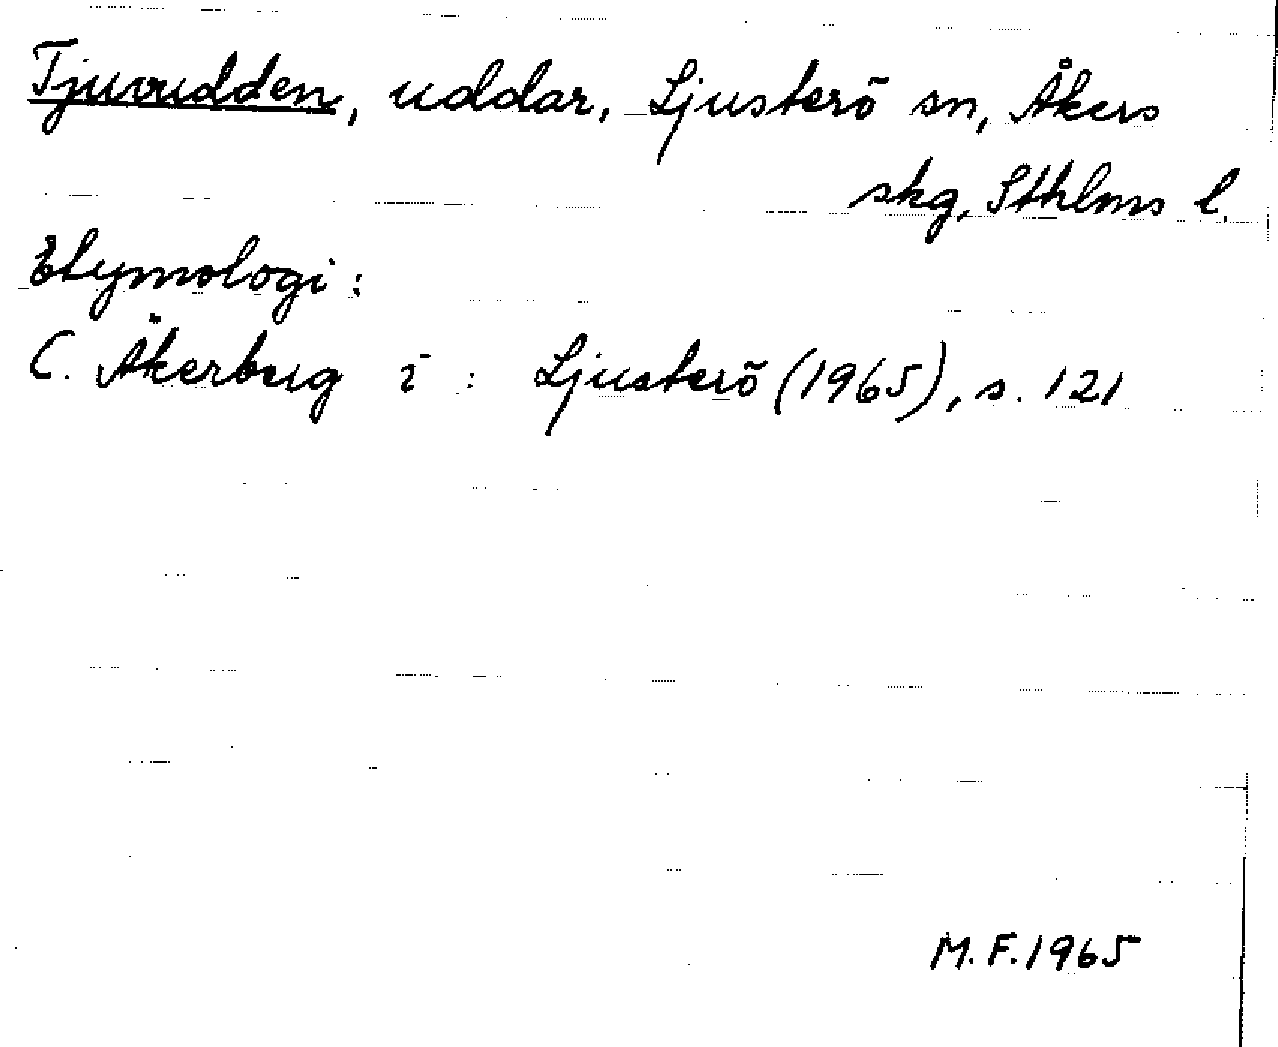 Tjuvudden, uddar, Ljusterö sn, Åkers
skg, Sthlms l.
Etymologi:
C. Åkerberg i : Ljusterö (1965), s. 121
M. F. 1965